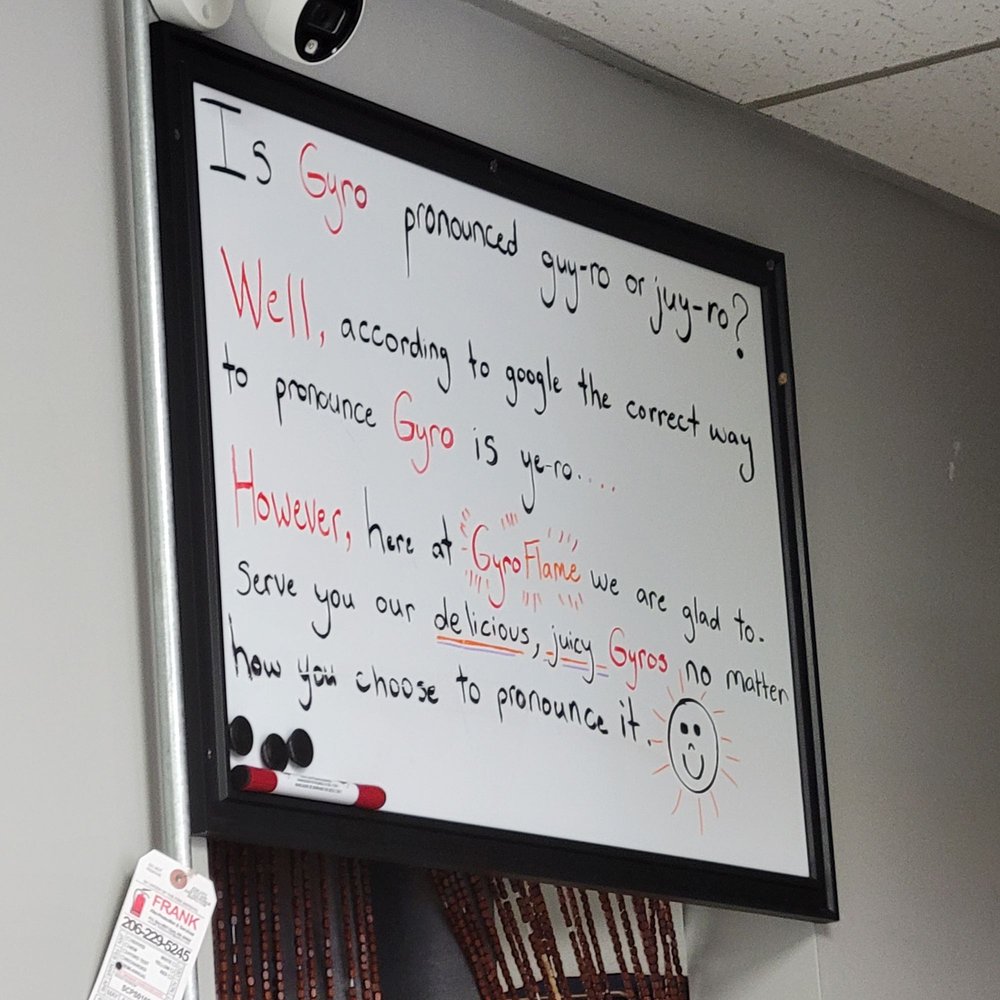 Is Gyro pronounced guy-ro or juy-ro?
Well, according to google the correct way
to pronounce Gyro is ye-ro.....
However, here at GyroFlame we are glad to
serve you our delicious, juicy Gyros no matter
how you choose to pronounce it.
FRANK
206-229-5245